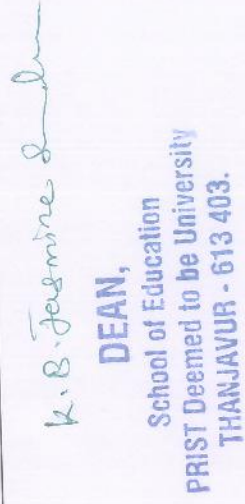 K. B. Jasmine
DEAN,
School of Education
PRIST Deemed to be University
THANJAVUR - 613 403.